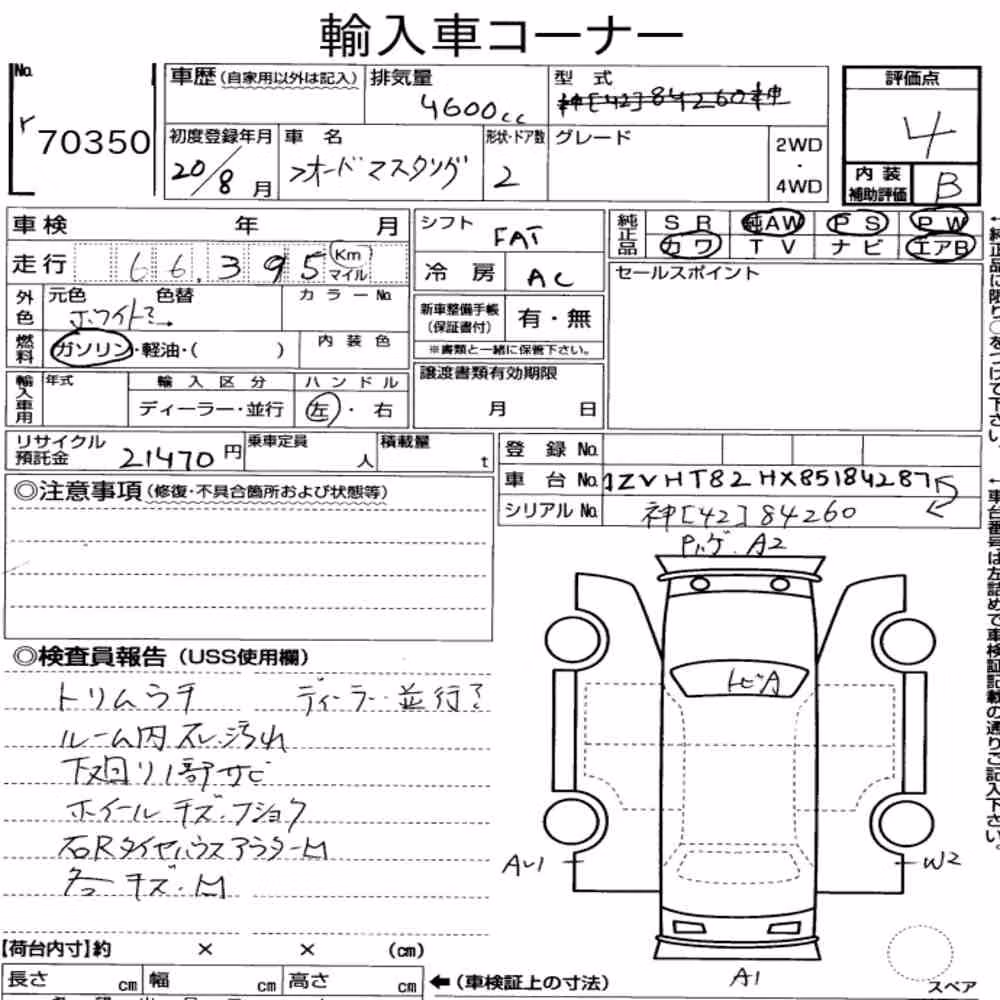 輸入車コーナー
No. r 70350
車歴 (自家用以外は記入) 排気量 4600cc 型式 神[42]84260神
評価点 4
初度登録年月 20/8月 車名 フオードマスタング 形状・ドア数 2 グレード 2WD・4WD
内装補助評価 B
車検 年 月
シフト FAT
純正品 SR 純AW PS PW
カワ TV ナビ エアB
走行 66,395 Km マイル
冷房 AC
セールスポイント
外色 元色 ホワイト 色替 カラーNo.
新車整備手帳(保証書付) 有・無
※書類と一緒に保管下さい。
燃料 ガソリン・軽油・( ) 内装色
輸入車用 年式 輸入区分 ディーラー・並行 ハンドル 左・右
譲渡書類有効期限
月 日
リサイクル預託金 21470円 乗車定員 人 積載量 t
登録No.
車台No. 1ZVHT82HX85184287
シリアルNo. 神[42]84260
◎注意事項(修復・不具合箇所および状態等)
Pハゲ.A2
トビA
A1
W2
A1
スペア
◎検査員報告(USS使用欄)
トリムウキ ディーラー並行?
ルーム内スレ.汚れ
下廻り1部サビ
ホイールキズ.フショク
右Rタイヤハウスアウター凹
各キズ.凹
【荷台内寸】約 × × (cm)
長さ cm 幅 cm 高さ cm ←(車検証上の寸法)
↑純正品に限り○をつけて下さい。
↑車台番号は左詰めで車検証記載の通りご記入下さい。